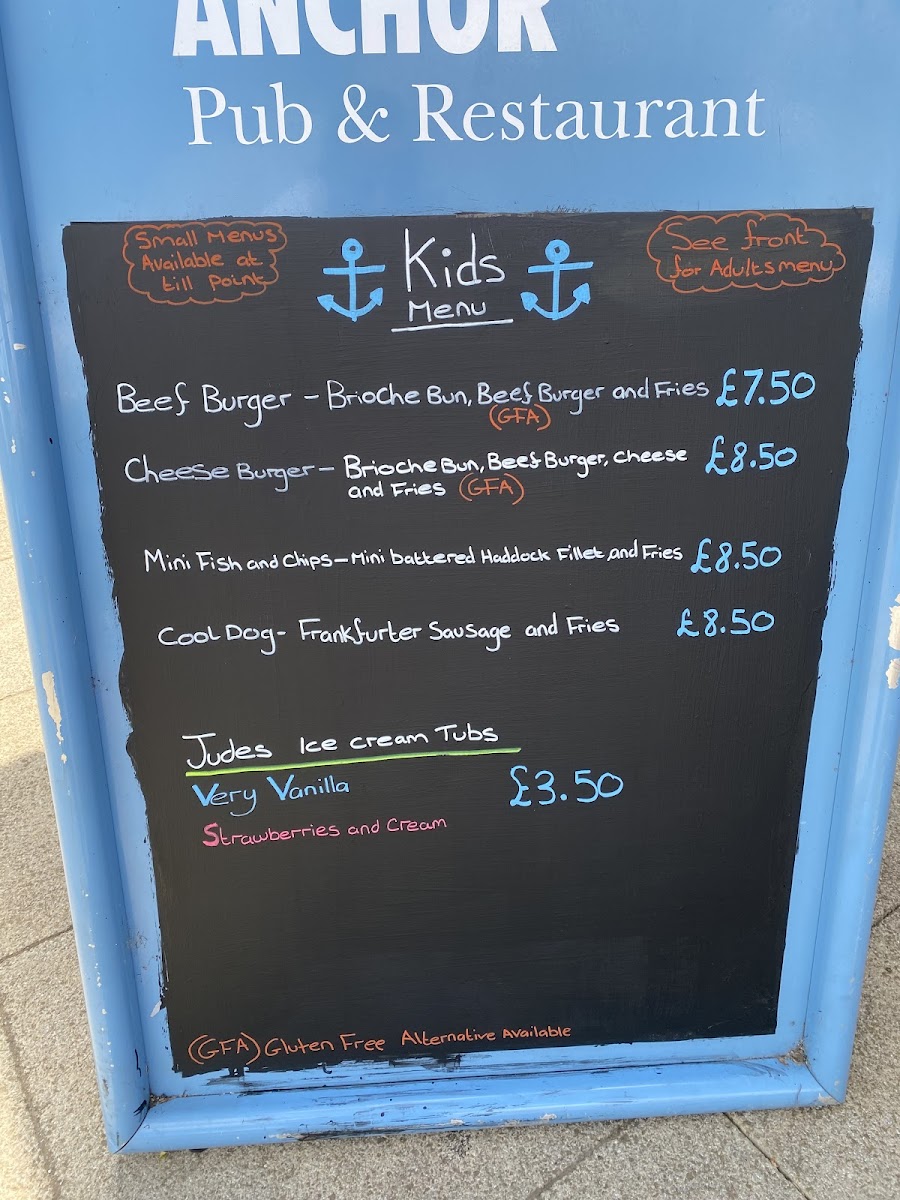 ANCHOR
Pub & Restaurant
Small Menus
Available at
till Point
Kids
Menu
See front
for Adults menu
Beef Burger - Brioche Bun, Beef Burger and Fries £7.50
(GFA)
Cheese Burger - Brioche Bun, Beef Burger, cheese £8.50
and Fries (GFA)
Mini Fish and Chips - Mini battered Haddock Fillet and Fries £8.50
Cool Dog - Frankfurter Sausage and Fries £8.50
Judes Ice cream Tubs
Very Vanilla £3.50
Strawberries and Cream
(GFA) Gluten Free Alternative Available